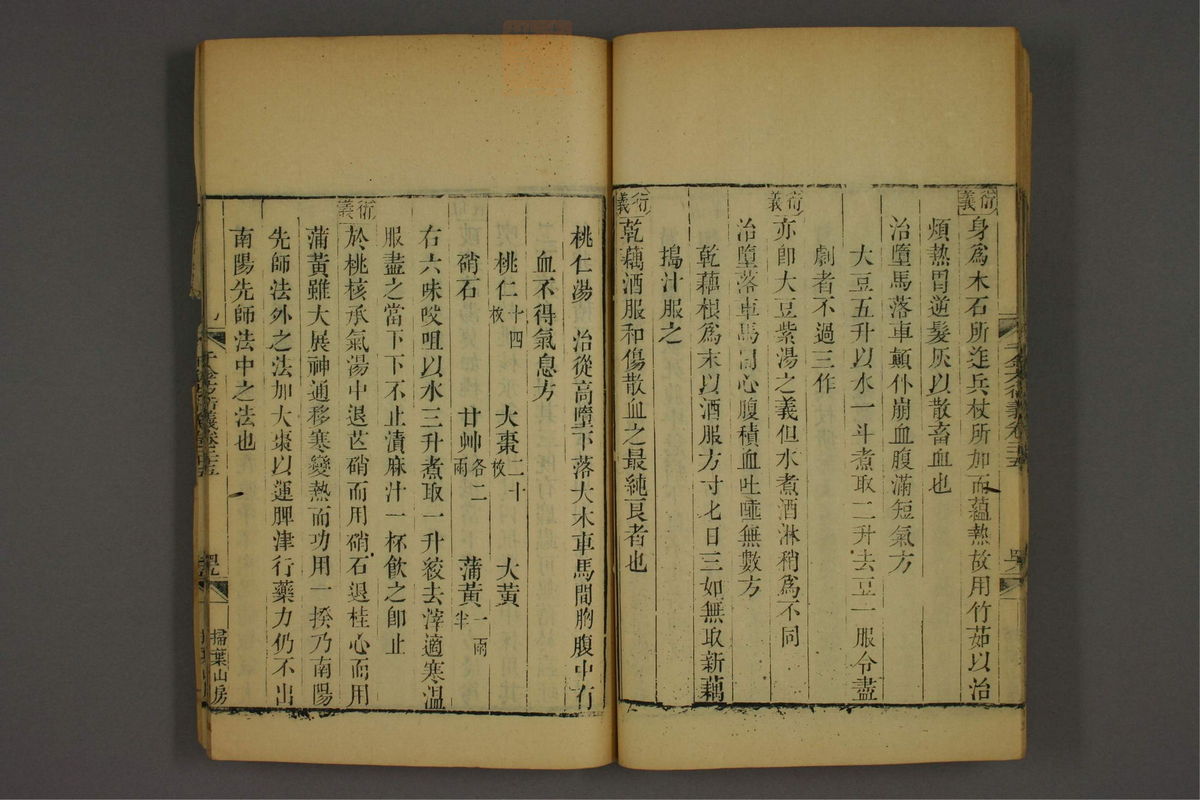 衍義
身爲木石所迮兵杖所加而蘊熱故用竹茹以治
煩熱胃逆髮灰以散畜血也
治墮馬落車顛仆崩血腹滿短氣方
大豆五升以水一斗煮取二升去豆一服令盡
劇者不過三作
衍義
亦卽大豆紫湯之義但水煮酒淋稍爲不同
治墮落車馬間心腹積血吐唾無數方
乾藕根爲末以酒服方寸七日三如無取新藕
搗汁服之
衍義
乾藕酒服和傷散血之最純良者也
桃仁湯 治從高墮下落大木車馬間胸腹中有
血不得氣息方
桃仁十四枚 大棗二十枚 大黃
硝石 甘艸各二兩 蒲黃一兩半
右六味㕮咀以水三升煮取一升絞去滓適寒溫
服盡之當下下不止漬麻汁一杯飮之卽止
衍義
於桃核承氣湯中退芒硝而用硝石退桂心而用
蒲黃雖大展神通移寒變熱而功用一揆乃南陽
先師法外之法加大棗以運脾津行藥力仍不出
南陽先師法中之法也
千金方衍義卷二十五
掃葉山房